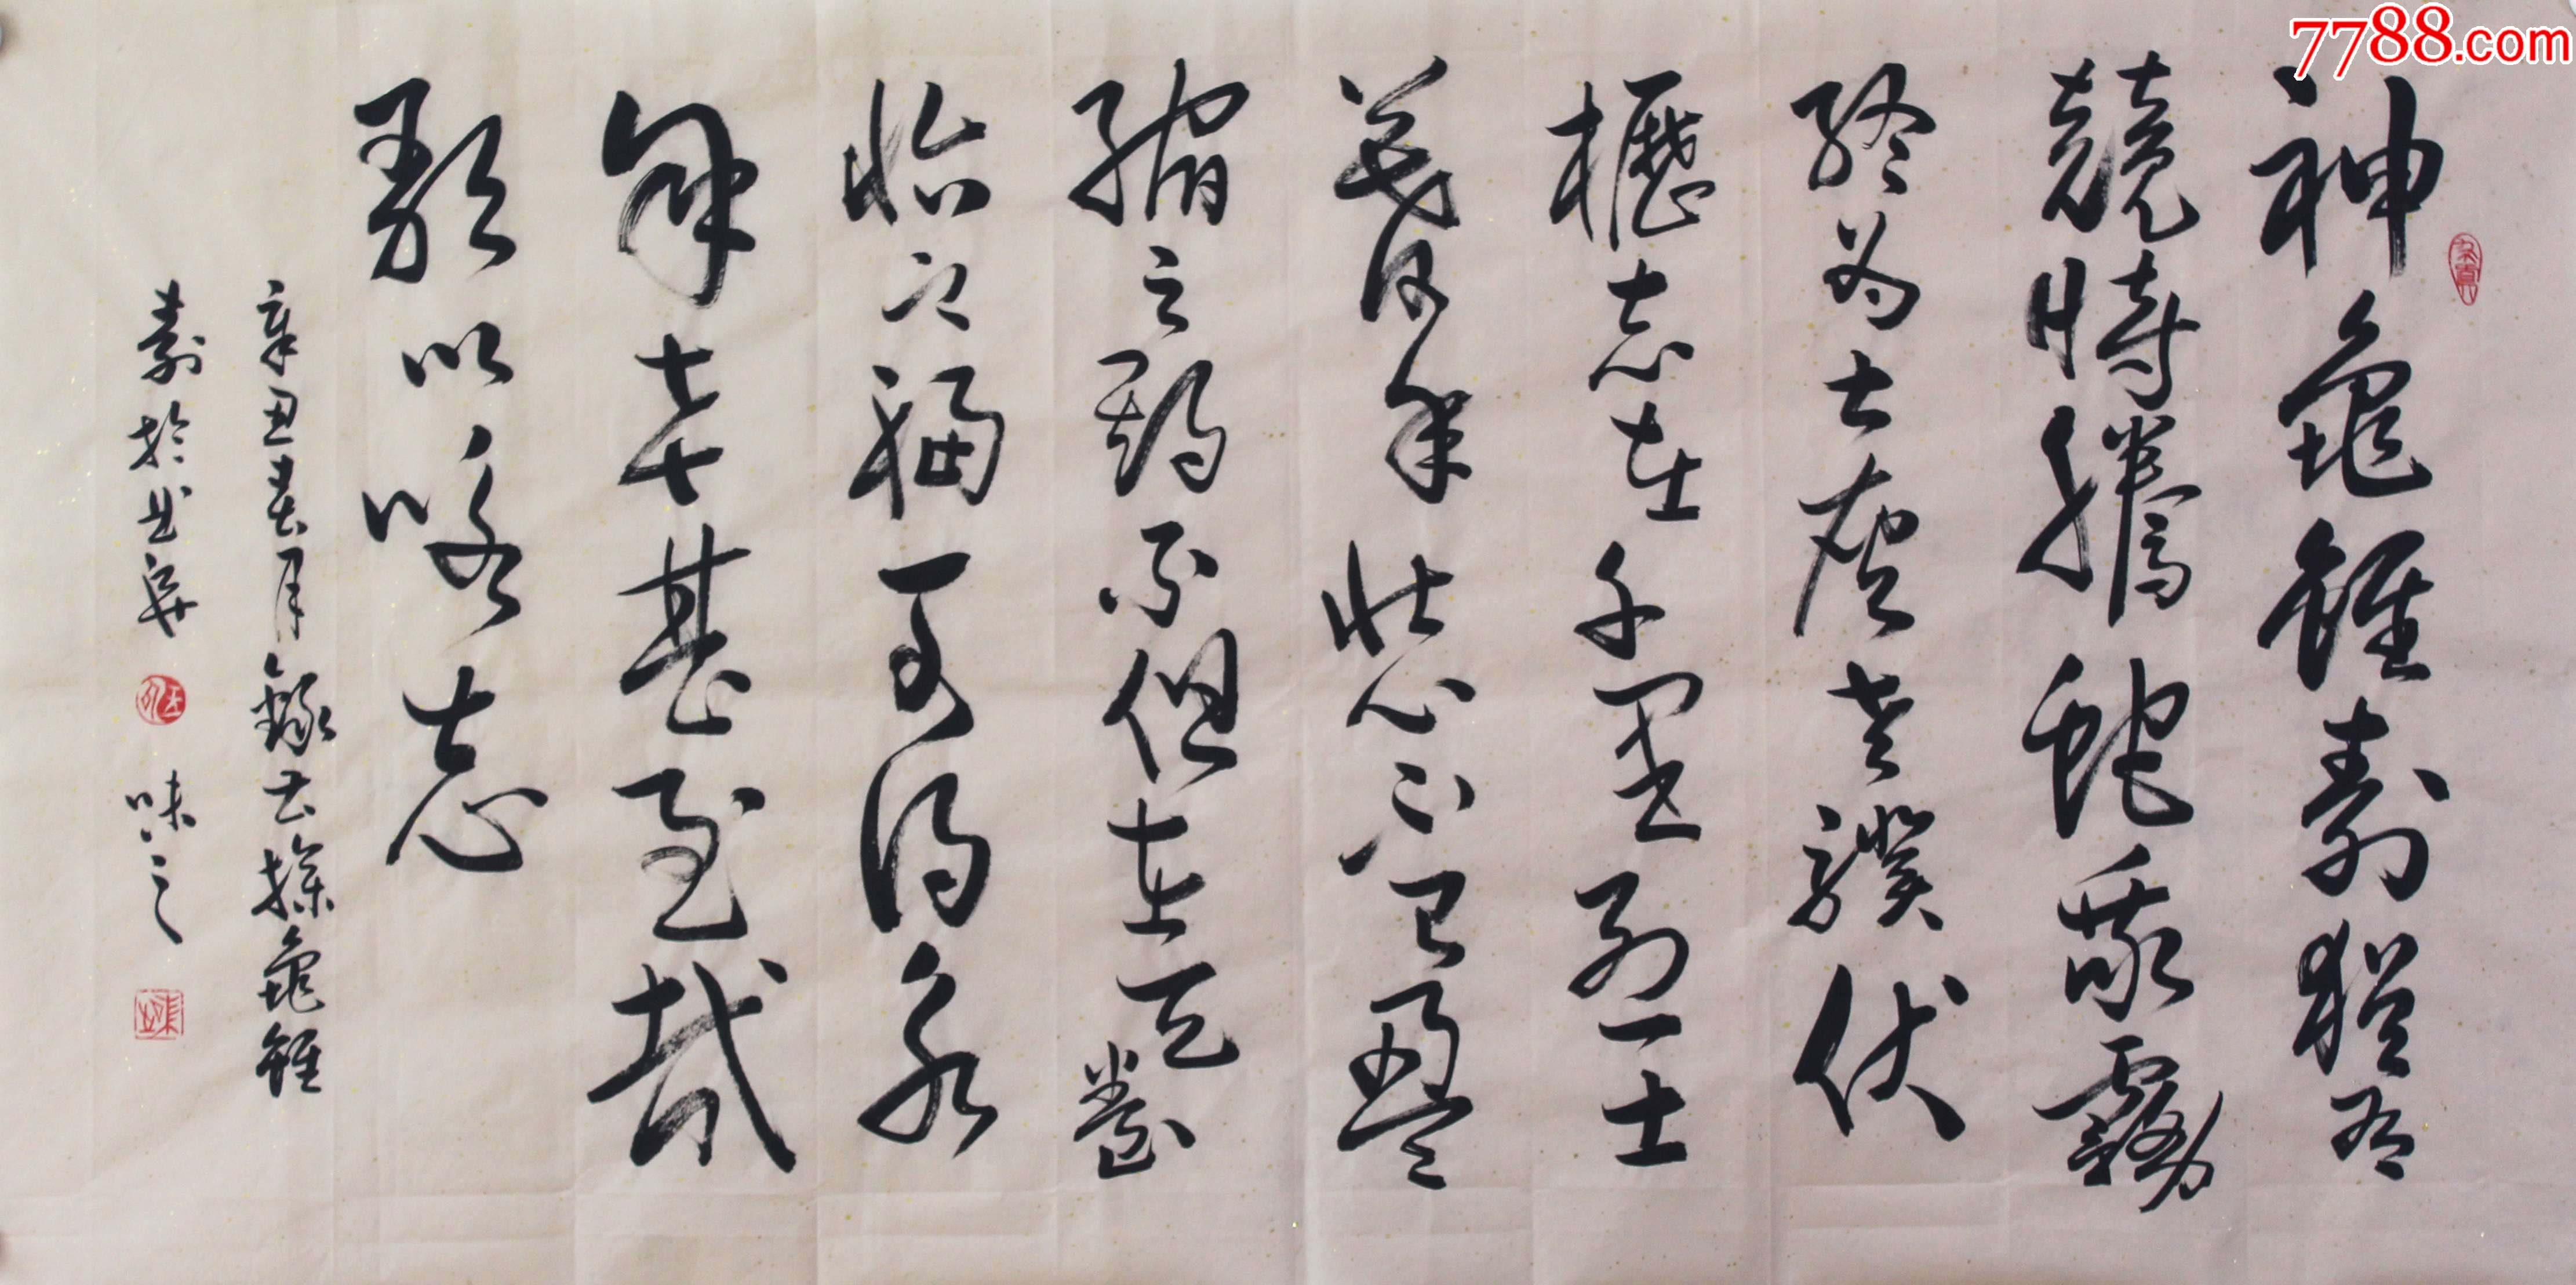 7788.com
神龜雖壽猶有
競時騰蛇乘霧
終為土灰老驥伏
櫪志在千里烈士
暮年壯心不已盈
縮之期不但在天養
怡之福可得永
年幸甚至哉
歌以詠志
辛丑春月錄曹操龜雖
壽於 味之